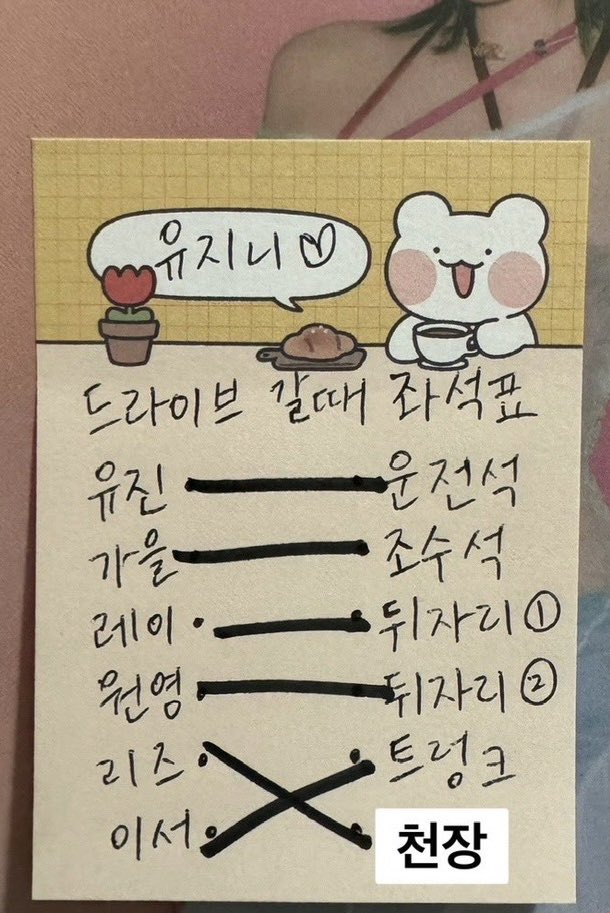 유지니♡
드라이브 갈때 좌석표
유진 운전석
가을 조수석
레이 뒤자리①
원영 뒤자리②
리즈 트렁크
이서 천장